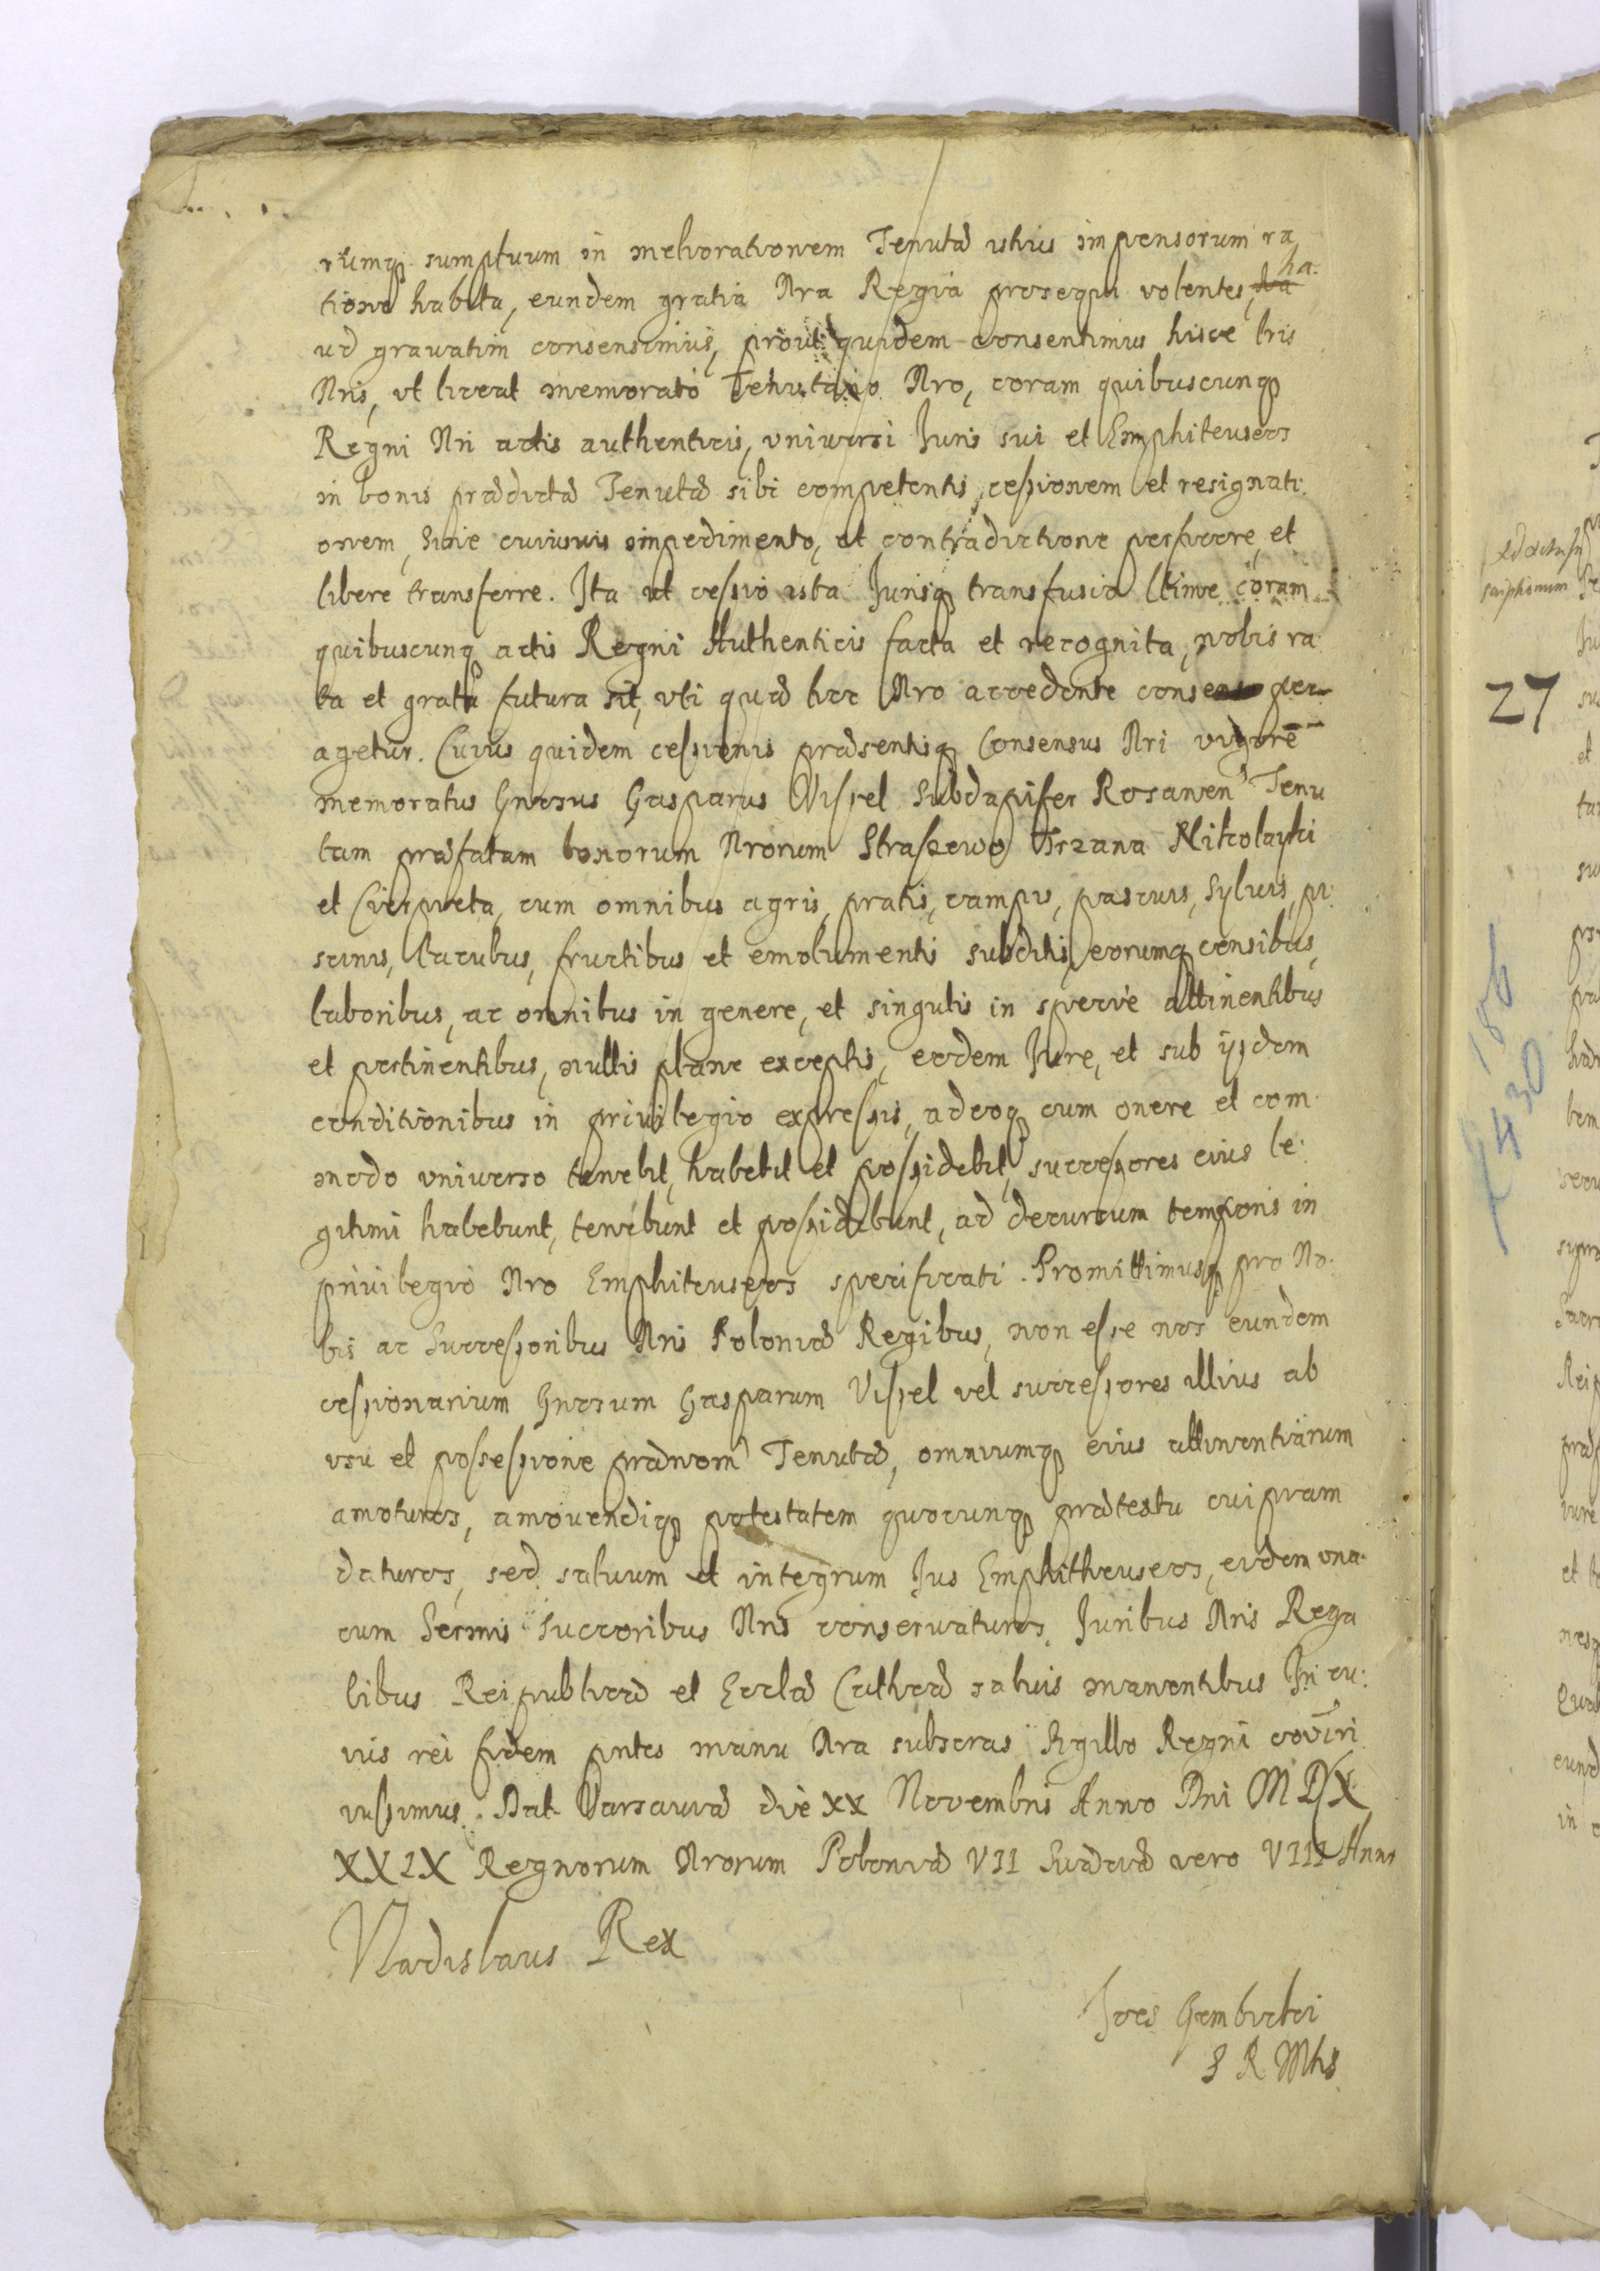 rumq sumptuum in meliorationem Tenutæ istius impensorum ra
tione habita, eundem gratia Nra Regia prosequi volentes, ha:
ud gravatim consensimus, prout quidem consentimus hisce lris
Nris, ut liceat memorato Tenutario Nro, coram quibuscunq
Regni Nri actis authenticis, universi Juris sui et Emphiteuseos
in bonis prædictæ Tenutæ sibi competentis, cessionem et resignati:
onem, sine cuiusuis impedimento, et contradictione perficere, et
libere transferre. Ita ut cessio ista Jurisq transfusio ltime coram
quibuscunq actis Regni Authenticis facta et recognita, nobis ra:
ta et grata futura sit, uti quæ hoc Nro accedente consensu per
agetur. Cuius quidem cessionis præsentisq Consensus Nri vigore
memoratus Gnosus Gasparus Wissel Subdapifer Rosanen Tenu
tam præfatam bonorum Nrorum Straszewo Trzana Mikolayki
et Cierpieta, cum omnibus agris, pratis, campis, pascuis, sylvis, pi:
scinis, lacubus, fructibus et emolumentis subditis, eorumq censibus,
laboribus, ac omnibus in genere, et singulis in specie attinentibus
et pertinentibus, nullis plane exceptis, eodem Jure, et sub ijsdem
conditionibus in privilegio expressis, adeoq cum onere et com:
modo universo tenebit, habebit et possidebit, successores eius le:
gitimi habebunt, tenebunt et possidebunt, ad decursum temporis in
privilegio Nro Emphiteuseos specificati. Promittimusq pro No:
bis ac Successoribus Nris Poloniæ Regibus, non esse nos eundem
cessionarium Gnosum Gasparum Vissel vel successores illius ab
usu et possessione prænom Tenutæ, omniumq eius attinentiarum
amoturos, amovendiq potestatem quocunq prætextu cuipiam
daturos, sed salvum et integrum Jus Emphitheuseos, eidem una:
cum Sermis Succoribus Nris conservaturos. Juribus Nris Rega
libus Reipublicæ et Ecclæ Catholicæ salvis manentibus In cu:
ius rei fidem pntes manu Nra subscras Sigillo Regni coõiri
iussimus. Dat. Varsaviæ die XX Novembris Anno Dni MDX
XXIX Regnorum Nrorum Poloniæ VII Sueciæ vero VIII Anno
Vladislaus Rex
Joes Gembicki
S R Mtis
27
186
4430